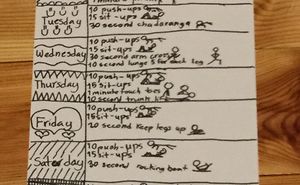 Tuesday
10 push-ups
15 sit-ups
30 second chadaranga
Wednesday
10 push-ups
15 sit-ups
30 second arm cross
10 second lunge each leg
Thursday
10 push-ups
15 sit-ups
1 minute touch toes
10 second trunk
Friday
10 push-ups
15 sit-ups
20 second keep legs up
Saturday
10 push-ups
15 sit-ups
30 second rocking boat